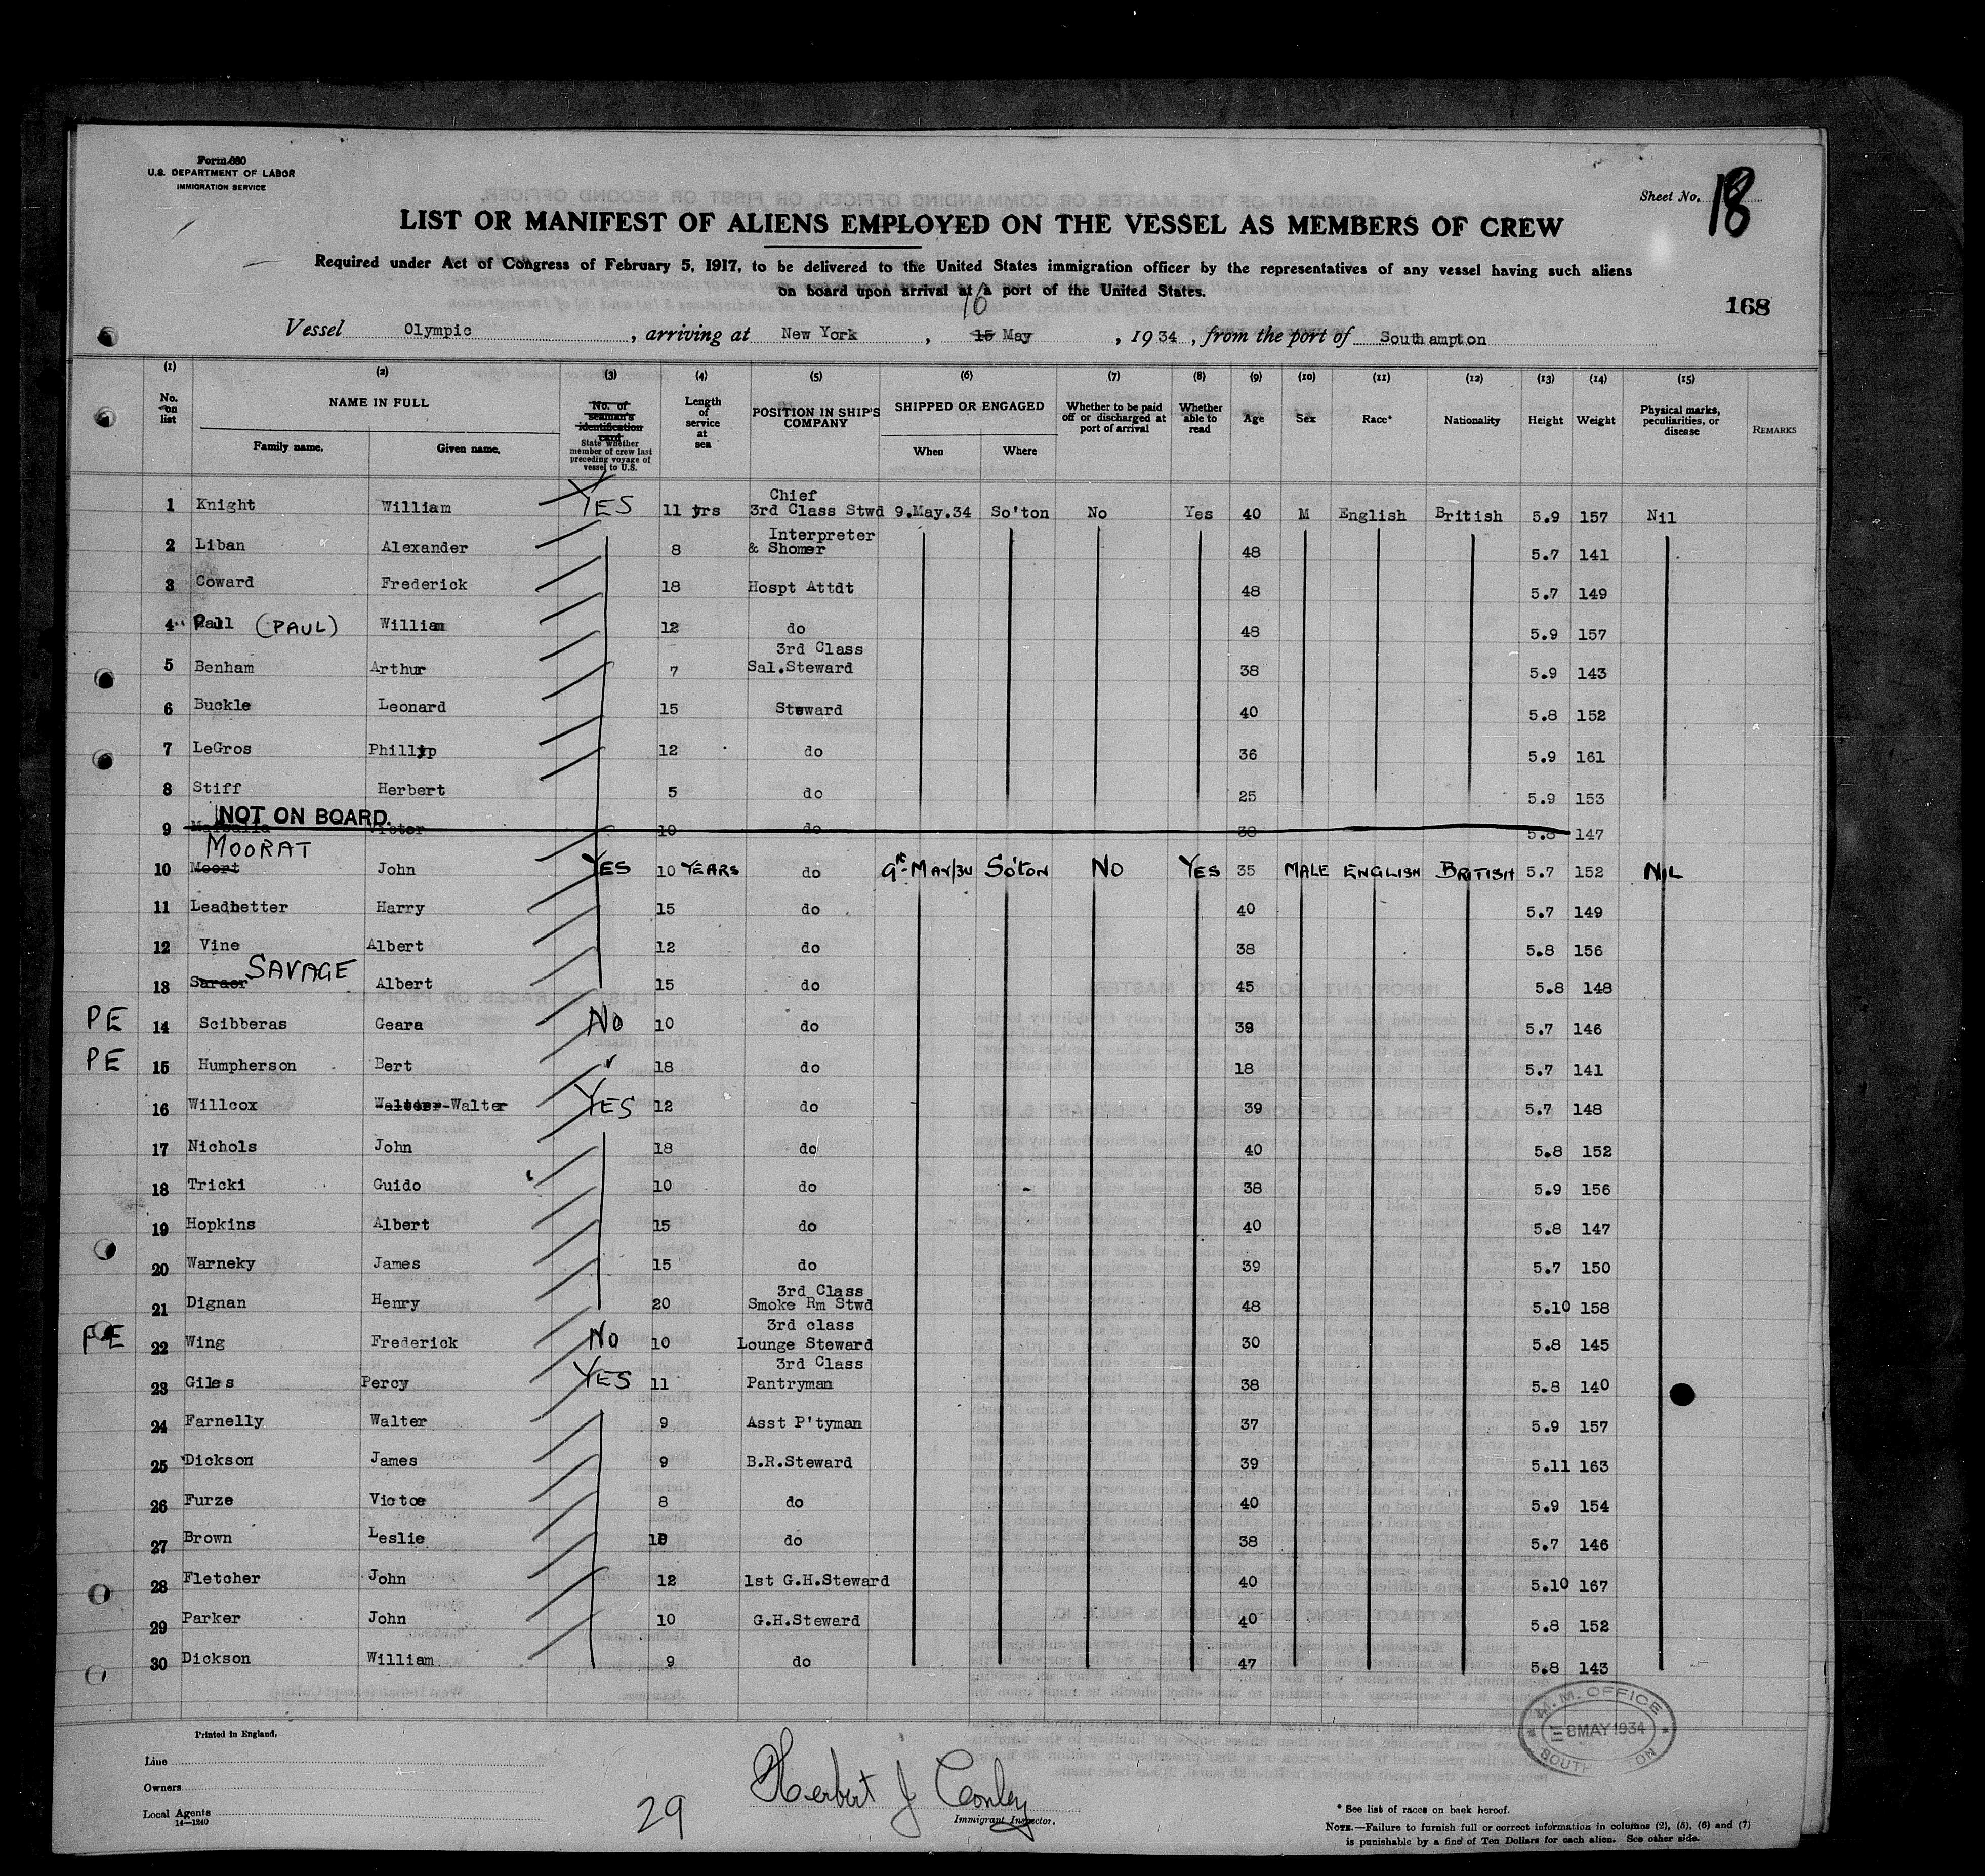 Form 680
U.S. DEPARTMENT OF LABOR
IMMIGRATION SERVICE
Sheet No. 18
LIST OR MANIFEST OF ALIENS EMPLOYED ON THE VESSEL AS MEMBERS OF CREW
Required under Act of Congress of February 5, 1917, to be delivered to the United States immigration officer by the representatives of any vessel having such aliens
on board upon arrival at a port of the United States.
168
16
Vessel Olympic, arriving at New York, 15 May, 1934, from the port of Southampton
(1) (2) (3) (4) (5) (6) (7) (8) (9) (10) (11) (12) (13) (14) (15)
No. on list
NAME IN FULL
Family name. Given name.
No. of seaman's identification card
State whether member of crew last preceding voyage of vessel to U.S.
Length of service at sea
POSITION IN SHIP'S COMPANY
SHIPPED OR ENGAGED
When Where
Whether to be paid off or discharged at port of arrival
Whether able to read
Age
Sex
Race*
Nationality
Height
Weight
Physical marks, peculiarities, or disease
REMARKS
1 Knight William YES 11 yrs Chief 3rd Class Stwd 9.May.34 So'ton No Yes 40 M English British 5.9 157 Nil
2 Liban Alexander 8 Interpreter & Shomer 48 5.7 141
3 Coward Frederick 18 Hospt Attdt 48 5.7 149
4 Pall (PAUL) William 12 do 48 5.9 157
5 Benham Arthur 7 3rd Class Sal.Steward 38 5.9 143
6 Buckle Leonard 15 Steward 40 5.8 152
7 LeGros Phillyp 12 do 36 5.9 161
8 Stiff Herbert 5 do 25 5.9 153
NOT ON BOARD.
9 Victor 10 do 38 5.8 147
MOORAT
10 Moort John YES 10 YEARS do 9th MAY/34 So'TON NO YES 35 MALE ENGLISH BRITISH 5.7 152 NIL
11 Leadbetter Harry 15 do 40 5.7 149
12 Vine Albert 12 do 38 5.8 156
SAVAGE
13 Albert 15 do 45 5.8 148
PE 14 Scibberas Geara No 10 do 39 5.7 146
PE 15 Humpherson Bert 18 do 18 5.7 141
16 Willcox Walter YES 12 do 39 5.7 148
17 Nichols John 18 do 40 5.8 152
18 Tricki Guido 10 do 38 5.9 156
19 Hopkins Albert 15 do 40 5.8 147
20 Warneky James 15 do 39 5.7 150
21 Dignan Henry 20 3rd Class Smoke Rm Stwd 48 5.10 158
PE 22 Wing Frederick No 10 3rd class Lounge Steward 30 5.8 145
23 Giles Percy YES 11 3rd Class Pantryman 38 5.8 140
24 Farnelly Walter 9 Asst P'tyman 37 5.9 157
25 Dickson James 9 B.R.Steward 39 5.11 163
26 Furze Victoe 8 do 40 5.9 154
27 Brown Leslie do 38 5.7 146
28 Fletcher John 12 1st G.H.Steward 40 5.10 167
29 Parker John 10 G.H.Steward 40 5.8 152
30 Dickson William 9 do 47 5.8 143
M.M. OFFICE
8 MAY 1934
SOUTH TON
Printed in England.
Line
Owners
Local Agents
14—1240
29
Herbert J Conley
Immigrant Inspector.
* See list of races on back hereof.
NOTE.—Failure to furnish full or correct information in columns (2), (5), (6) and (7)
is punishable by a fine of Ten Dollars for each alien. See other side.